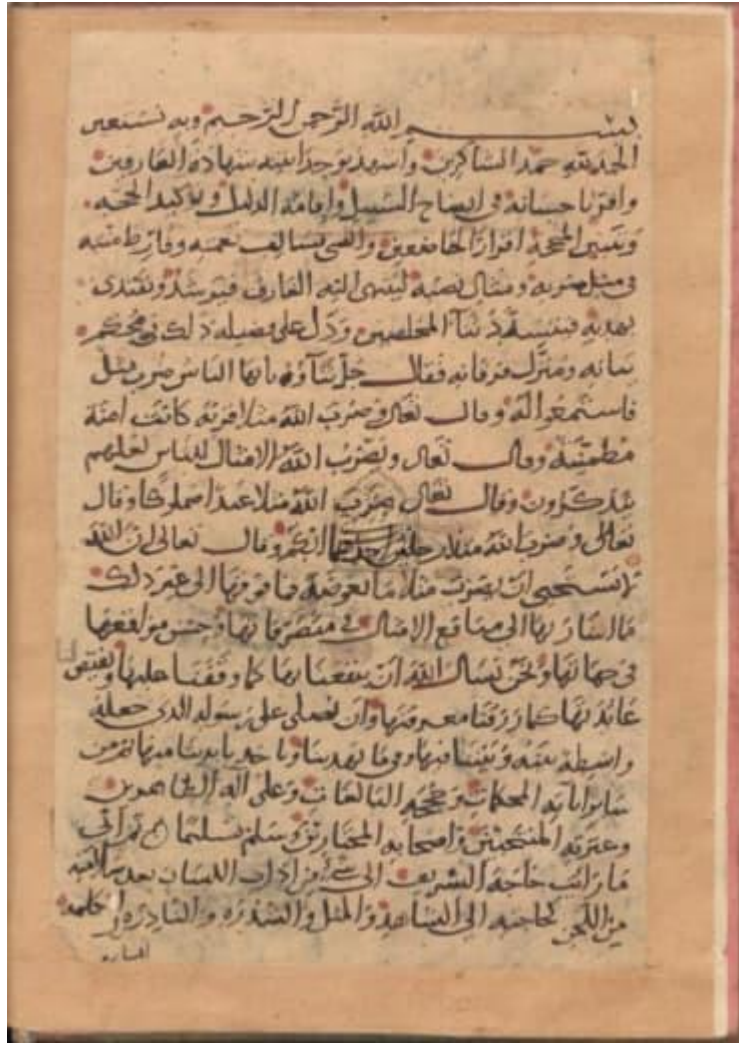 بسم الله الرحمن الرحيم وبه نستعين
الحمد لله حمد الشاكرين واشهد بوحدانيته شهادة العارفين
واقر باحسانه في ايضاح السبيل واقامة الدليل وتوكيد الحجه
وتبيين المحجة اقرار الخاضعين واثني بسالف نعمه وفارط مننه
في مثل ضربه ومثال نصبه ليتهدى اليه العارف فيرشد ويقتدى
بهديه ثناء المخلصين ودل على فضيله ذلك في محكم
بيانه ومنزل فرقانه فقال جل ثناؤه يايها الناس ضرب مثل
فاستمعوا له وقال تعالى وضرب الله مثلا قرية كانت امنة
مطمئنة وقال تعالى ويضرب الله الامثال للناس لعلهم
يتذكرون وقال تعالى ضرب الله مثلا عبدا مملوكا وقال
تعالى وضرب الله مثلا رجلين احدهما ابكم وقال تعالى ان الله
لا يستحيي ان يضرب مثلا ما بعوضة فما فوقها الى غير ذلك
مما اشار بها الى منافع الامثال في متصرفاتها وحسن مواقعها
في جهاتها ونحن نسال الله ان ينفعنا بها كما وقفنا عليها
كما رزقنا معرفتها وان يصلي على رسوله الذي جعله
واسطة بينه وبيننا فيها وفيما يهدينا وياخذ بايدينا منها ثم من
سائر اياته المحكمات وحججه البالغات وعلى اله
وعترته المنتجبين واصحابه المختارين وسلم تسليما ثم اني
ما رايت حاجة الشريف الى شيء من اداب اللسان بعد سلامته
من اللحن كحاجته الى الشاهد والمثل والشذرة والنادرة